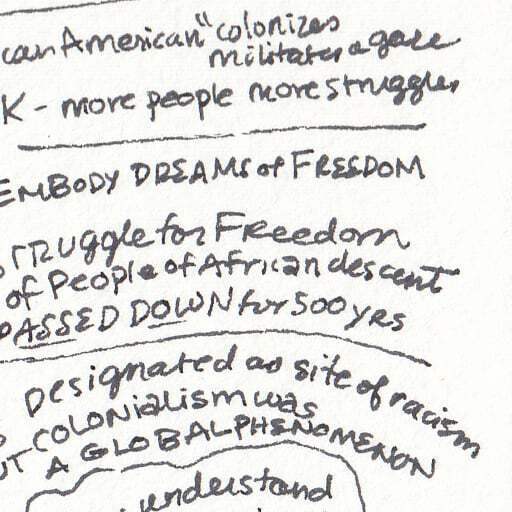 can American" colonizes
militates a gaze
K - more people more struggles
EMBODY DREAMS of FREEDOM
STRUGGLE for Freedom
of People of African descent
PASSED DOWN for 500 yrs
Designated as site of racism
UT COLONIALISM was
A GLOBAL PHENOMENON
understand